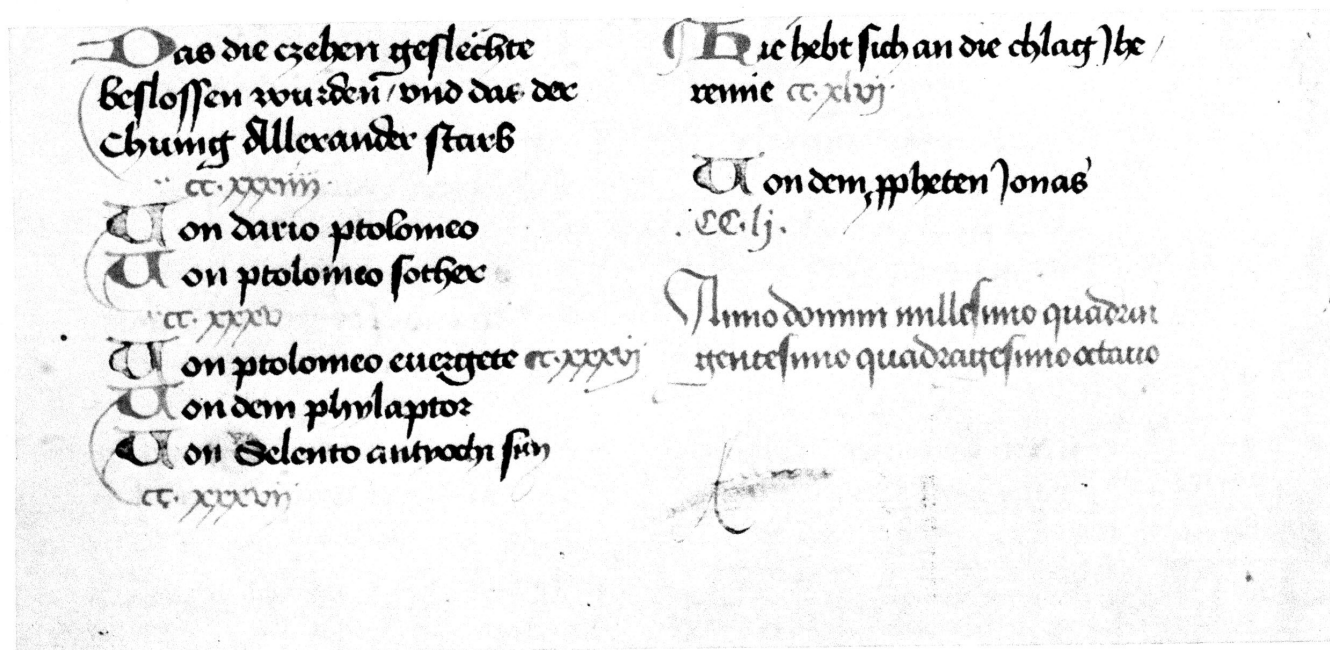 Das die czehen geslechte
beslossen wurden̄ / vnd das der
Chunig Allexander starb
cc · xxxiiii
Von dario ptolomeo
Von ptolomeo sother
cc · xxxv
Von ptolomeo euergete cc · xxxvj
Von dem phylaptor
Von Selento antyochi sun
cc · xxxvij
Hie hebt sich an die chlag Jhe /
remie cc · xlvj ·
Von dem ꝓpheten Jonas
· CC · lj ·
Anno domini millesimo quadrin
gentesimo quadragesimo octauo